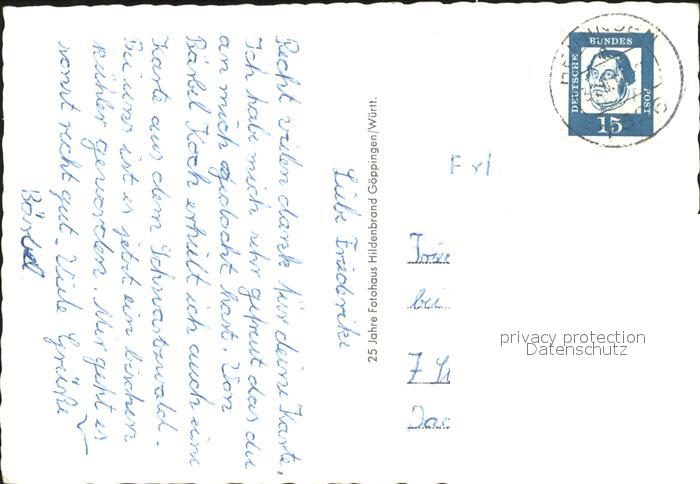 Liebe Friederike
Recht vielen dank für deine Karte.
Ich habe mich sehr gefreut das du
an mich gedacht hast. Von
Bärbel Koch erhielt ich auch eine
Karte aus dem Schwarzwald.
Bei uns ist es jetzt ein bischen
kühler geworden. Mir geht es
sonst recht gut. Viele Grüße
Bärbel
25 Jahre Fotohaus Hildenbrand Göppingen/Württ.
DEUTSCHE BUNDESPOST
15
bei
7
privacy protection
Datenschutz